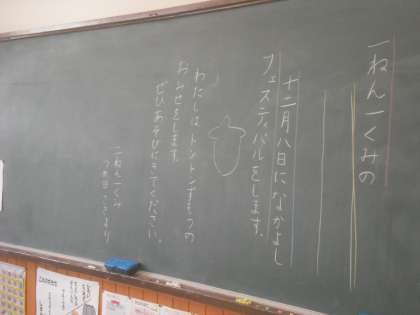 一ねん一くみの
十二月八日になかよし
フェスティバルをします。
わたしは、トントンずもうの
おみせをします。
ぜひあそびにきてください。
二ねん一くみ